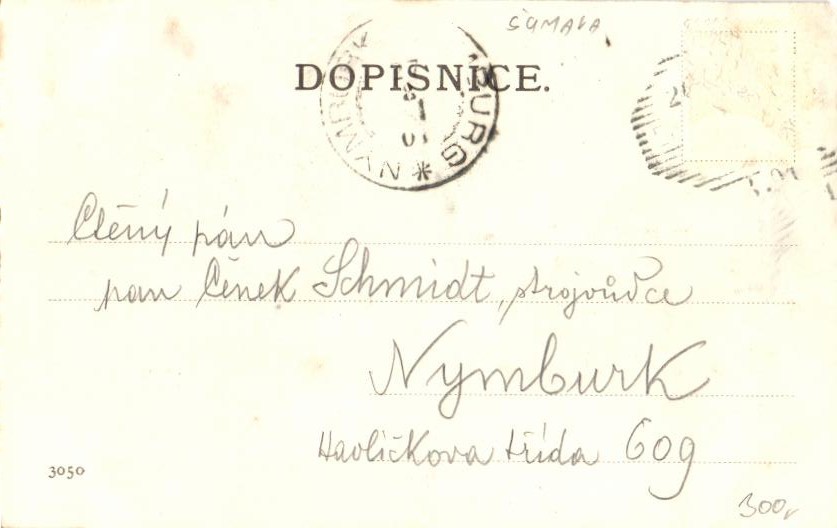 ŠUMAVA
DOPISNICE.
NYMBURK
BURG *
Ctěný pán
pan Čeněk Schmidt, strojvůdce
Nymburk
Havlíčkova třída 609
3050
300,